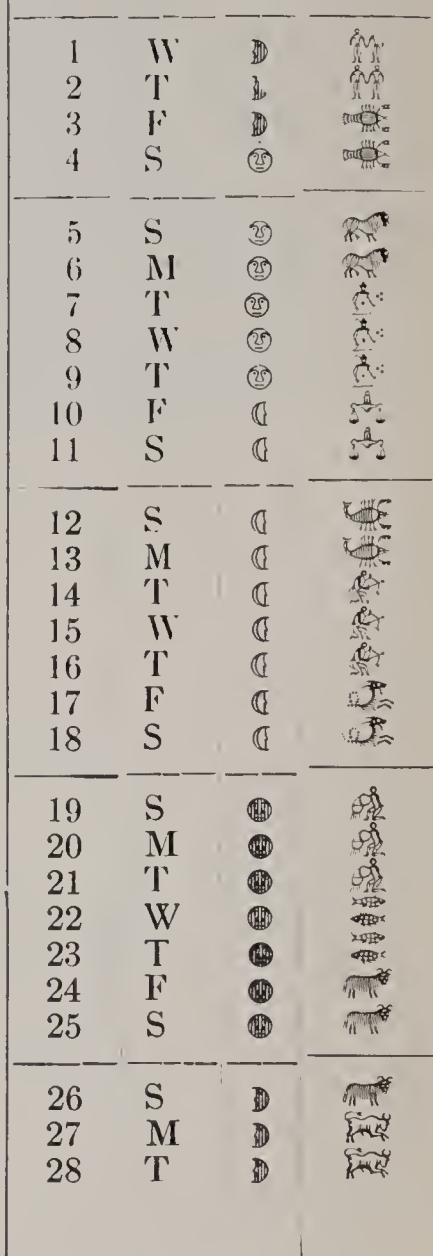 1 W
2 T
3 F
4 S
5 S
6 M
7 T
8 W
9 T
10 F
11 S
12 S
13 M
14 T
15 W
16 T
17 F
18 S
19 S
20 M
21 T
22 W
23 T
24 F
25 S
26 S
27 M
28 T